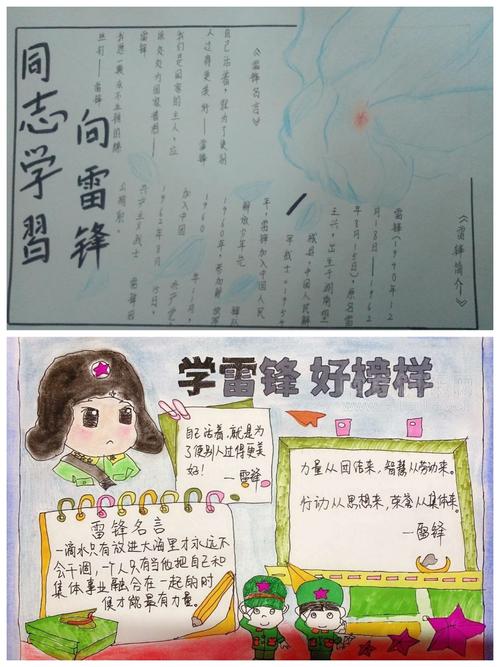 《雷锋简介》
雷锋（1940年12
月18日—1962
年8月15日），原名雷
兴，出生于湖南望
城县，中国人民解
军战士。1954
加入中国
1960
1962年8月
15日
共产主义战士
《雷锋名言》
自己活着，就为了使别
人过得更美好——雷锋
我们是国家的主人，应
该处处为国家着想——
雷锋
丝钉——雷锋
向雷锋
同志学習
学雷锋 好榜样
自己活着，就是为
了使别人过得更美
好！
—雷锋
力量从团结来，智慧从劳动来。
行动从思想来，荣誉从集体来。
—雷锋
雷锋名言
一滴水只有放进大海里才永远不
会干涸，一个人只有当他把自己和
集体事业融合在一起的时
候才能最有力量。